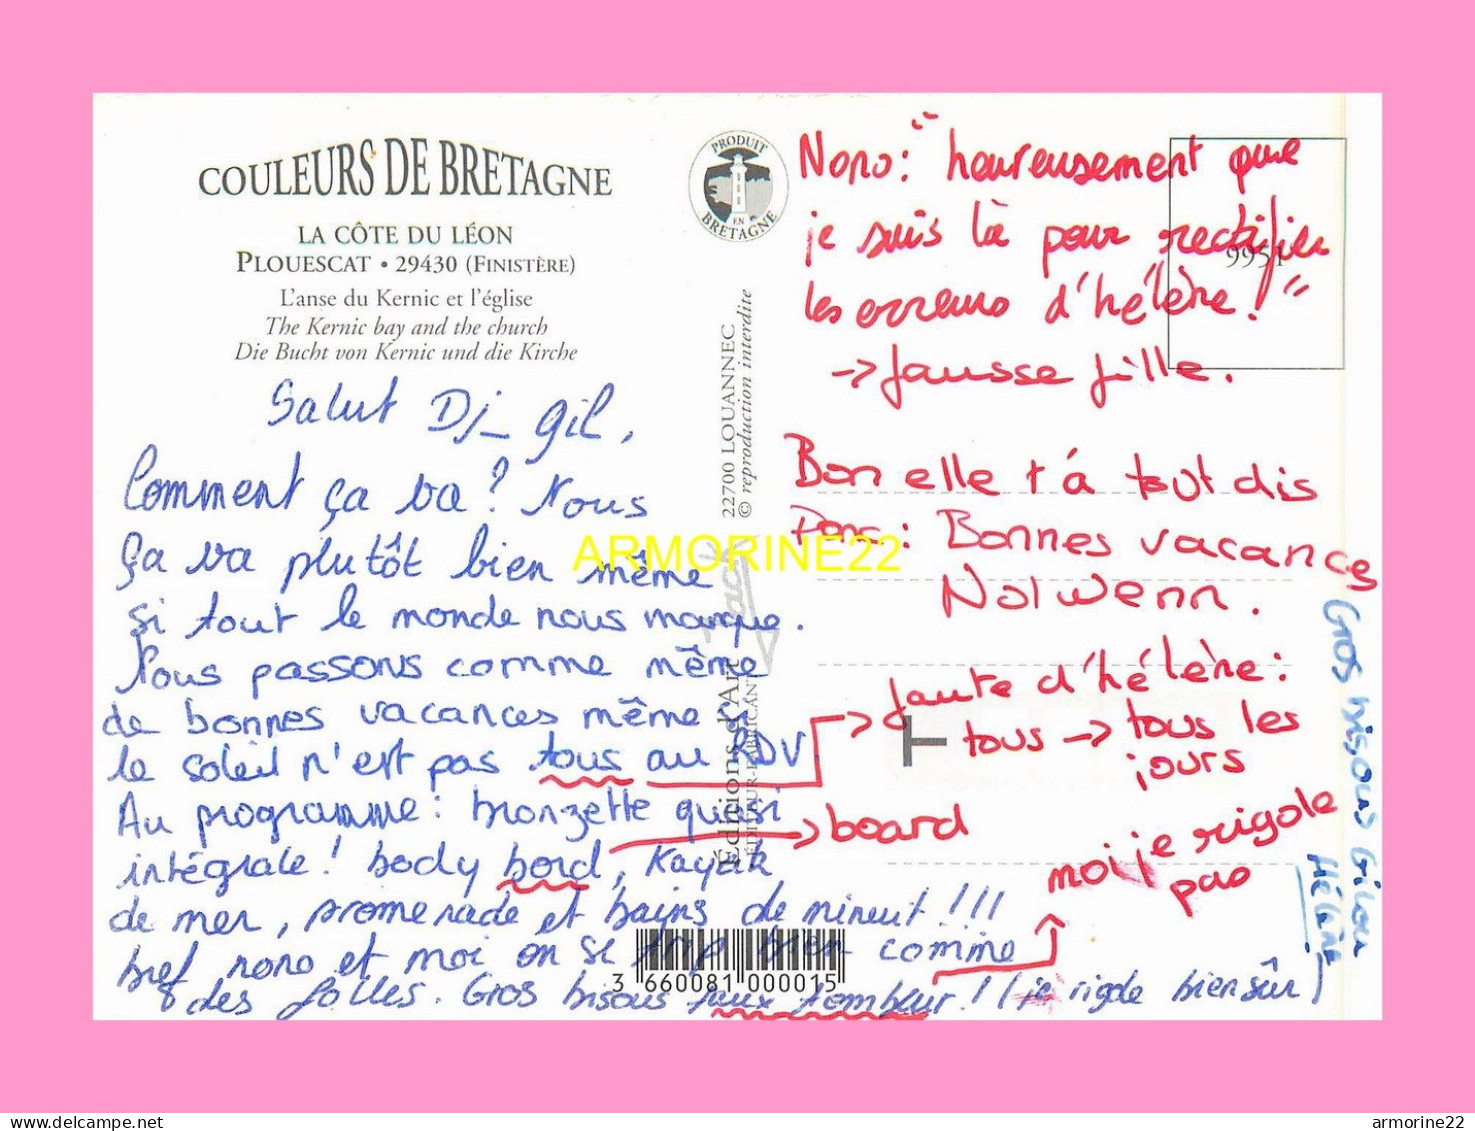 COULEURS DE BRETAGNE
LA CÔTE DU LÉON
PLOUESCAT • 29430 (FINISTÈRE)
L'anse du Kernic et l'église
The Kernic bay and the church
Die Bucht von Kernic und die Kirche
PRODUIT
EN
BRETAGNE
Salut Dj_gil,
Comment ça va? Nous
ça va plutôt bien même
si tout le monde nous manque.
Nous passons comme même
de bonnes vacances même si
le soleil n'est pas tous au RDV.
Au programme: bronzette quasi
intégrale! body bord, Kayak
de mer, promenade et bains de minuit!!!
bref nono et moi on si trip bien comme
des folles. Gros bisous faux tombeur!! (je rigole bien sûr)
22700 LOUANNEC
© reproduction interdite
Jack
Éditions d'Art
ÉDITEUR-FABRICANT
3 660081 000015
9951
Nono: "heureusement que
je suis là pour rectifier
les erreurs d'hélène!"
-> fausse fille.
Bon elle t'à tout dis
Donc: Bonnes vacances
Nolwenn.
-> faute d'hélène:
tous -> tous les
jours
-> board
moi je rigole
pas
Gros bisous Gilou
Hélène
ARMORINE22
armorine22
armorine22